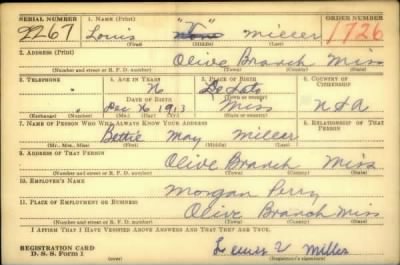 SERIAL NUMBER 1. NAME (Print) ORDER NUMBER
2267 Louis "V" Miller 1726
(First) (Middle) (Last)
2. ADDRESS (Print)
Olive Branch Miss
(Number and street or R. F. D. number) (Town) (County) (State)
3. TELEPHONE 4. AGE IN YEARS 5. PLACE OF BIRTH 6. COUNTRY OF CITIZENSHIP
DeSoto
(Town or county)
DATE OF BIRTH
Dec 16 1913 Miss
(Exchange) (Number) (Mo.) (Day) (Yr.) (State or country)
7. NAME OF PERSON WHO WILL ALWAYS KNOW YOUR ADDRESS 8. RELATIONSHIP OF THAT PERSON
Bettie May Miller
(Mr., Mrs., Miss) (First) (Middle) (Last)
9. ADDRESS OF THAT PERSON
Olive Branch Miss
(Number and street or R. F. D. number) (Town) (County) (State)
10. EMPLOYER'S NAME
Morgan Perry
11. PLACE OF EMPLOYMENT OR BUSINESS
Olive Branch Miss
(Number and street or R. F. D. number) (Town) (County) (State)
I AFFIRM THAT I HAVE VERIFIED ABOVE ANSWERS AND THAT THEY ARE TRUE.
REGISTRATION CARD
D. S. S. Form 1 (over) Louis V Miller
(Registrant's signature)